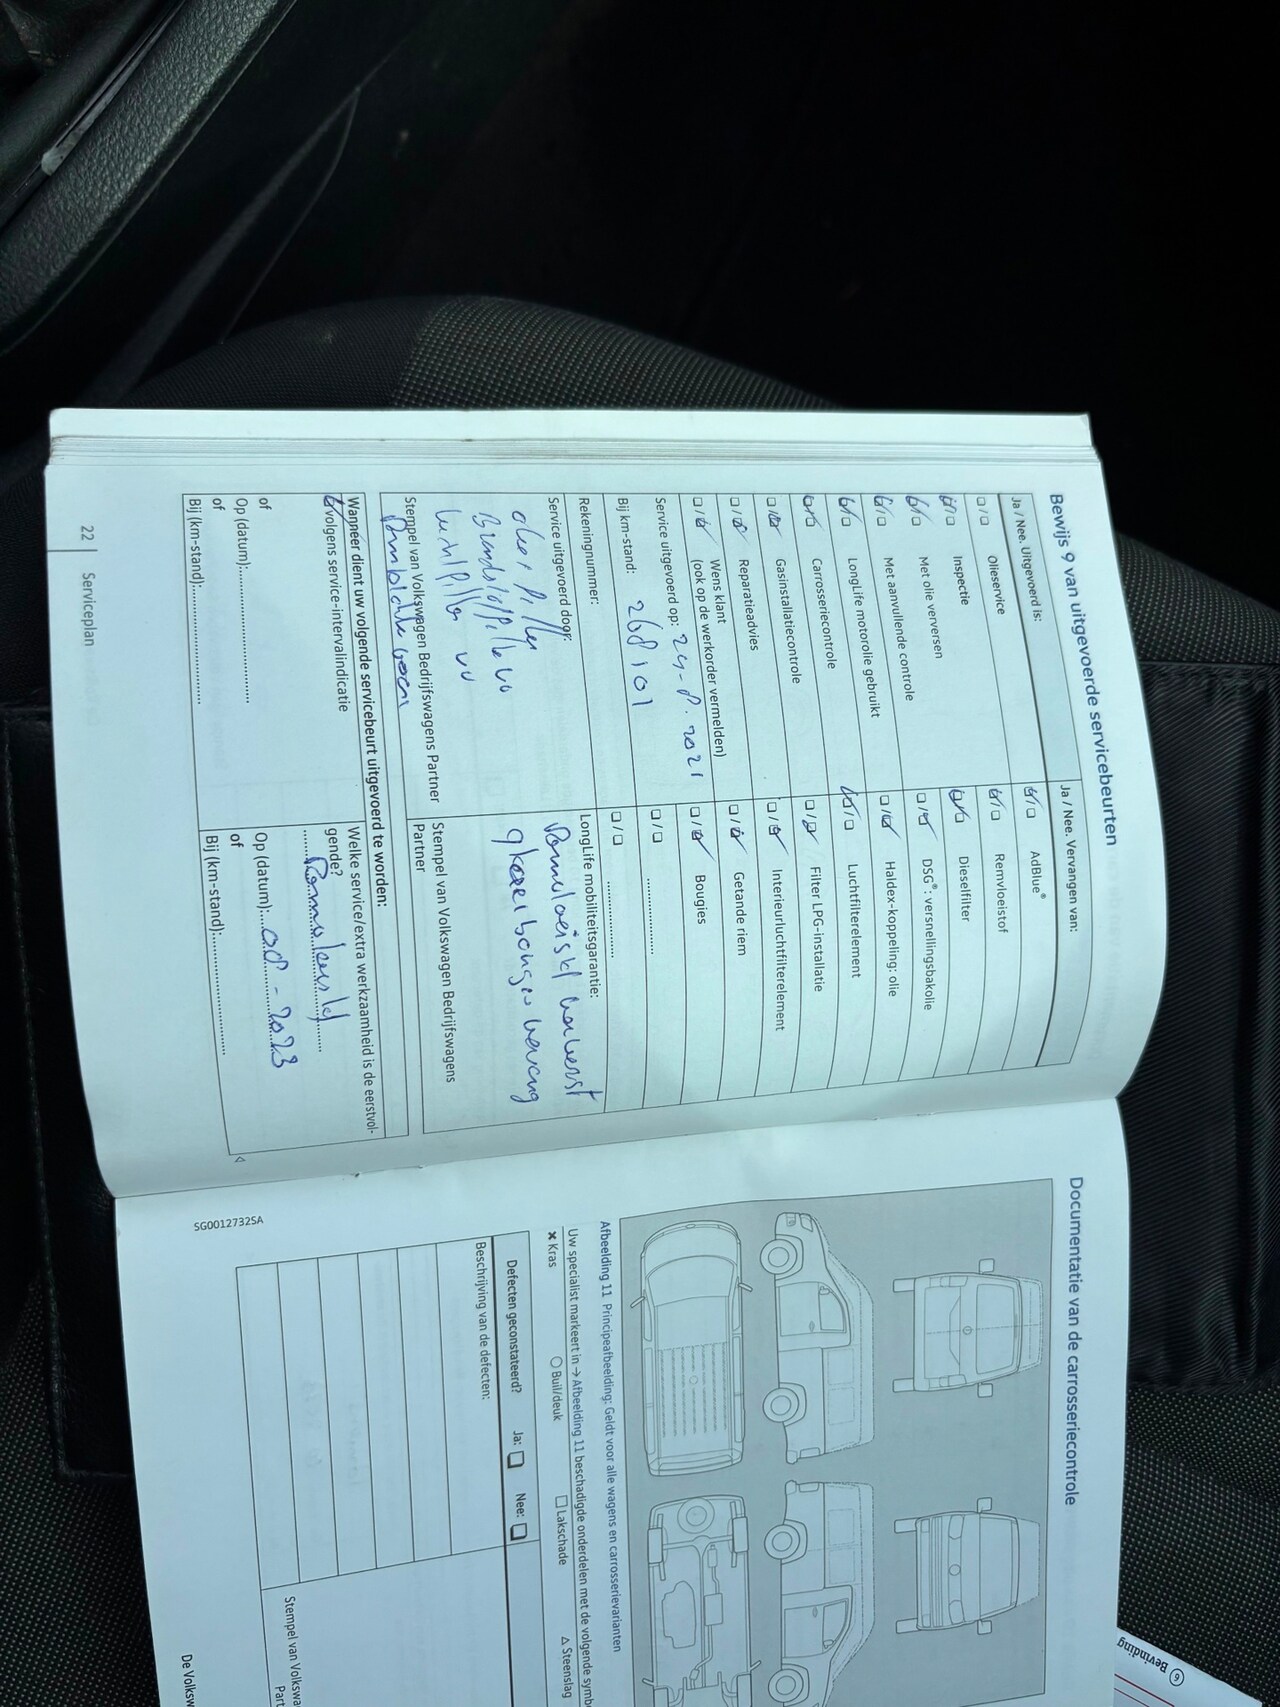 Bewijs 9 van uitgevoerde servicebeurten
Ja / Nee. Uitgevoerd is:
Olieservice
Inspectie
Met olie verversen
Met aanvullende controle
LongLife motorolie gebruikt
Carrosseriecontrole
Gasinstallatiecontrole
Reparatieadvies
Wens klant
(ook op de werkorder vermelden)
Service uitgevoerd op: 24-8-2021
Bij km-stand: 268101
Rekeningnummer:
Service uitgevoerd door:
Stempel van Volkswagen Bedrijfswagens Partner
Ja / Nee. Vervangen van:
AdBlue®
Remvloeistof
Dieselfilter
DSG®: versnellingsbakolie
Haldex-koppeling: olie
Luchtfilterelement
Filter LPG-installatie
Interieurluchtfilterelement
Getande riem
Bougies
LongLife mobiliteitsgarantie:
Stempel van Volkswagen Bedrijfswagens
Partner
Wanneer dient uw volgende servicebeurt uitgevoerd te worden:
volgens service-intervalindicatie
of
Op (datum):
of
Bij (km-stand):
Welke service/extra werkzaamheid is de eerstvol-
gende?
Op (datum): 08-2023
of
Bij (km-stand):
22 Serviceplan
Documentatie van de carrosseriecontrole
Afbeelding 11 Principeafbeelding: Geldt voor alle wagens en carrosserievarianten
Uw specialist markeert in → Afbeelding 11 beschadigde onderdelen met de volgende
Kras
Buil/deuk
Lakschade
Steenslag
Defecten geconstateerd? Ja: Nee:
Beschrijving van de defecten:
Stempel van
SG0012732SA
6 Bevinding